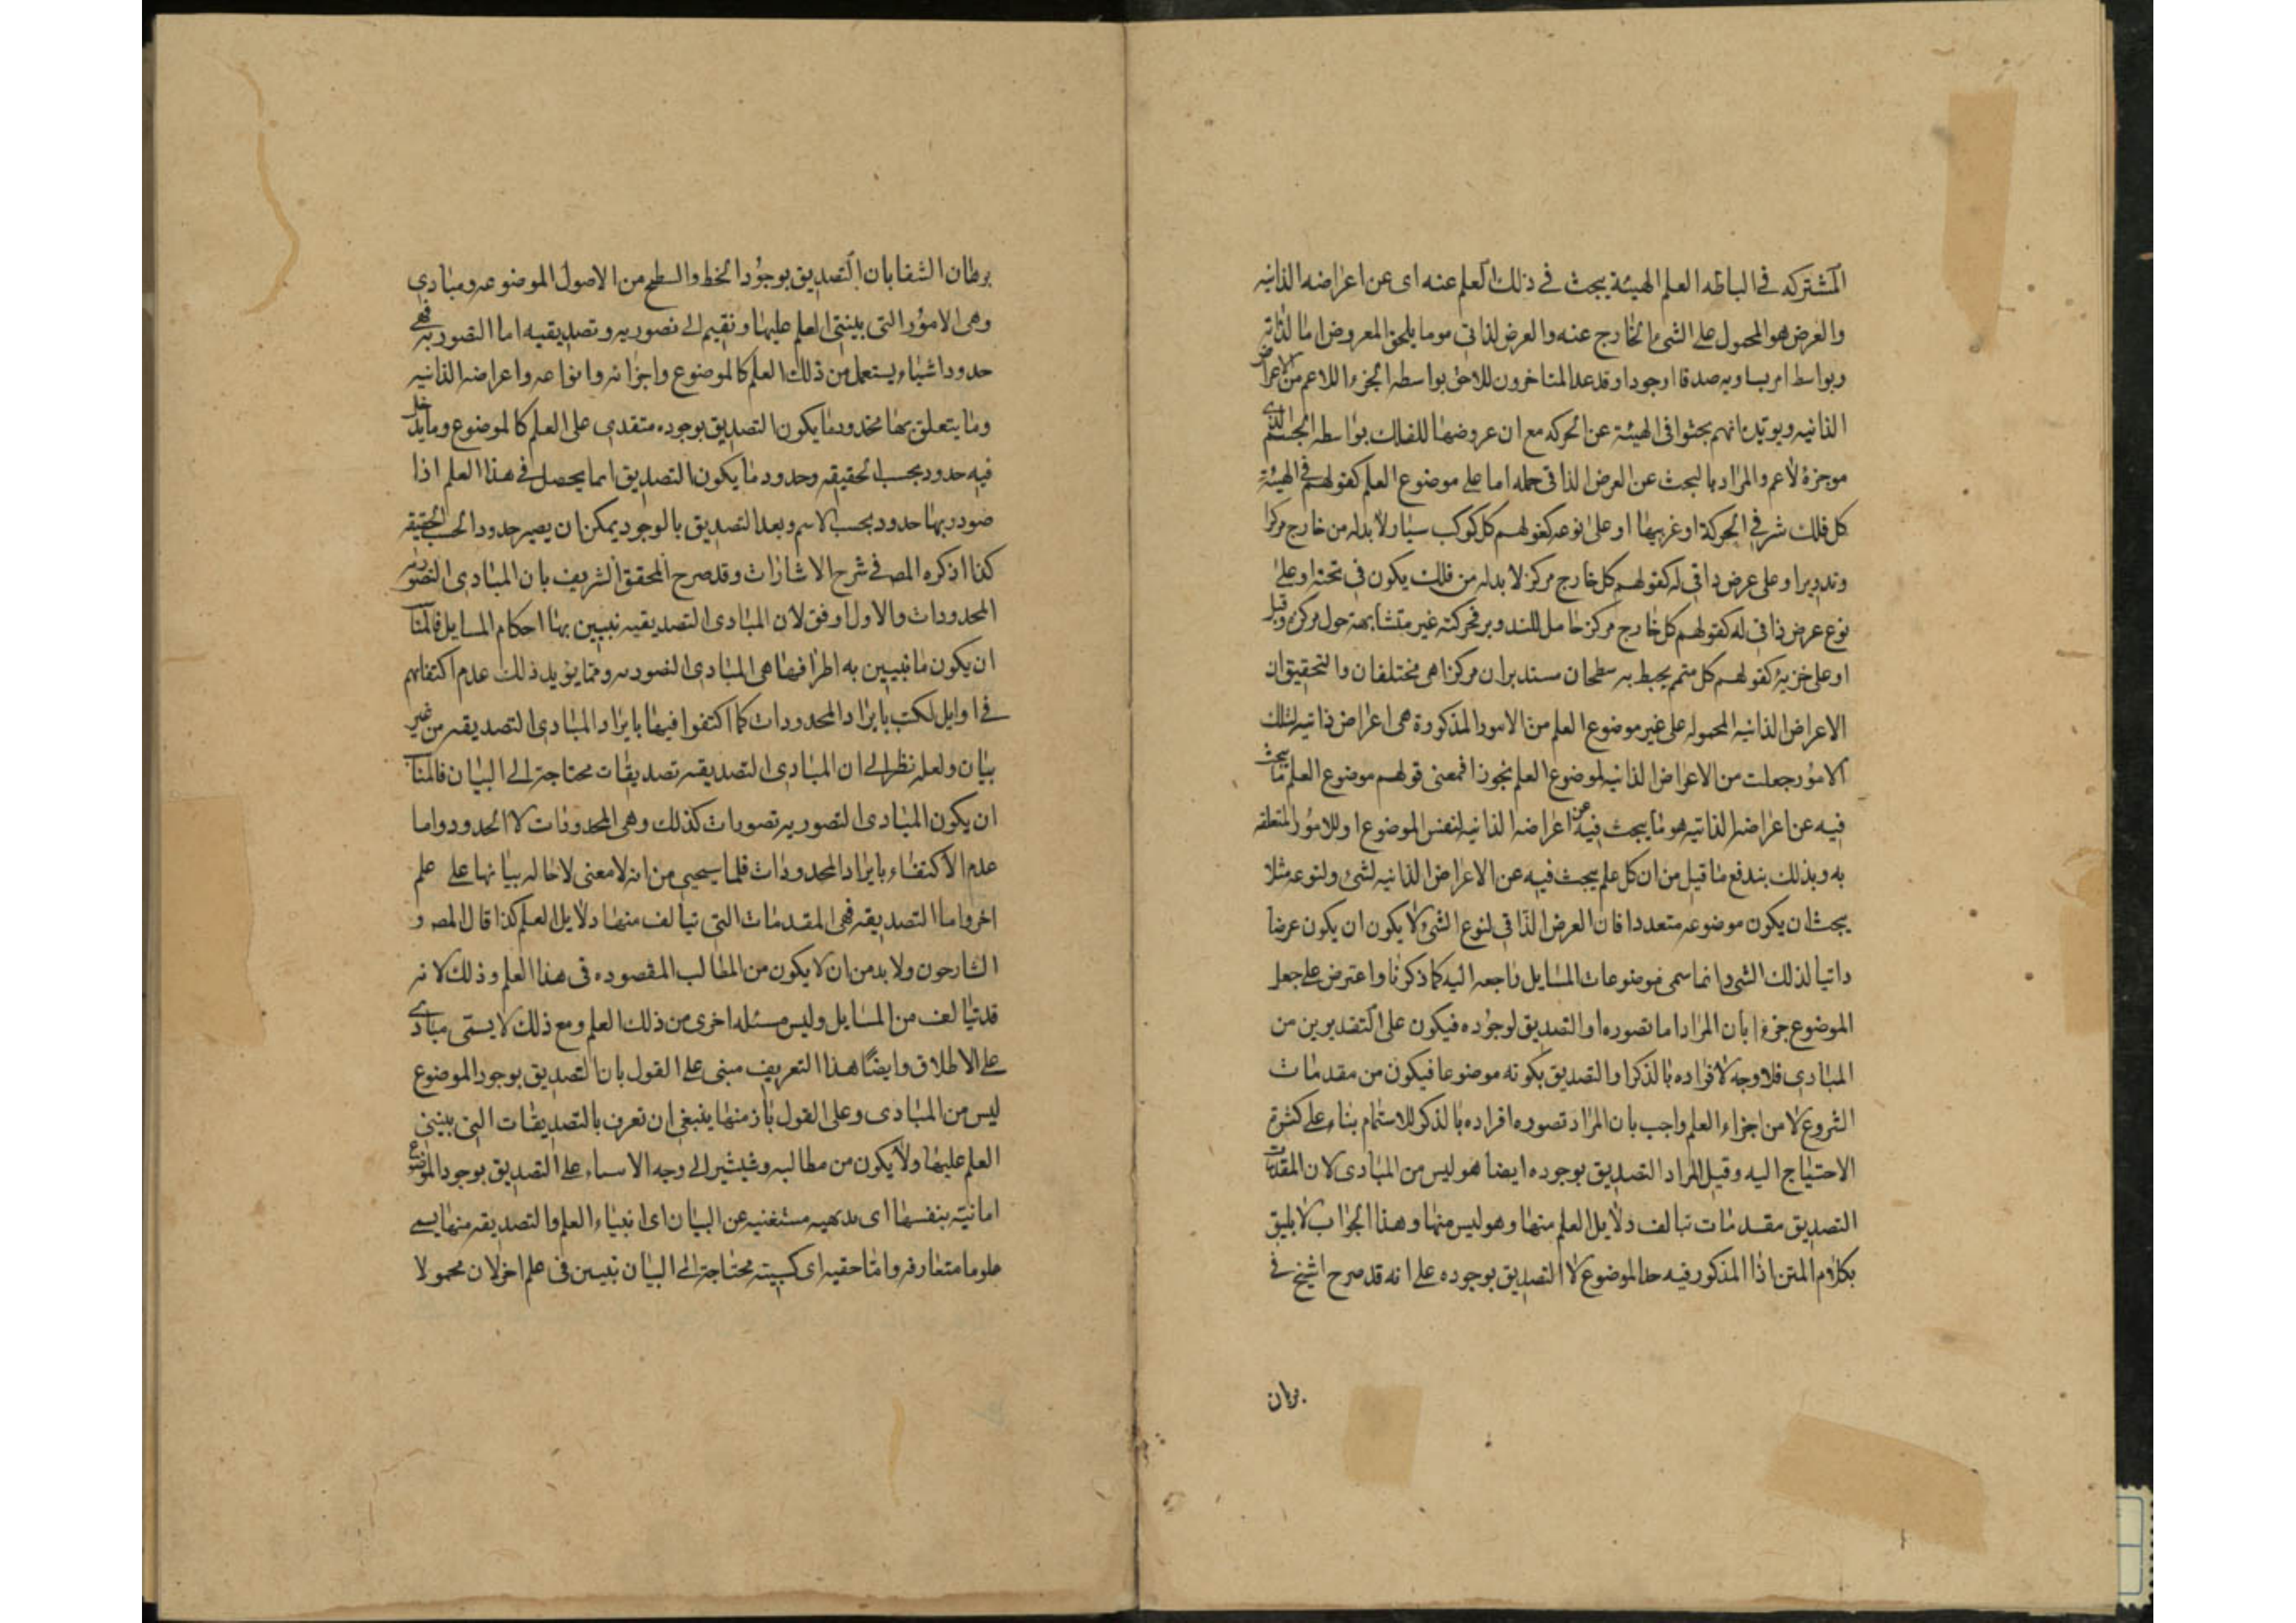 المشتركه في الباطه العلم الهيئة يبحث في ذلك العلم عنه اى عن اعراضه الذانيه
والعرض هو المحمول على الشئ الخارج عنه والعرض لذاتي موما يلحق المعروض اما لذاته
وبواسط امر يساويه صدقا اوجودا وقد عد المتاخرون للاحق بواسطه الجزء اللاعم من الاعراض
الذانيه ويويد انهم بحثوا فى الهيئة عن الحركه مع ان عروضها للفلك بواسطه الجسم الذى
موجزة لاعم والمراد بالبحث عن العرض الذاتى حمله اما على موضوع العلم كقولهم في الهيئة
كل فلك شرفي الحركة اوغربيها اوعلى نوعه كقولهم كل كوكب سيار لابدله من خارج مركز
وتدويرا وعلى عرض ذاتى له كقولهم كل خارج مركز لابدله من فلك يكون فى تحته اوعلى
نوع عرض ذاتى له كقولهم كل خارج مركز حامل للتدوير فحركته غير متشابهة حول مركزه وقيل
اوعلى جزيه كقولهم كل متمم يحيط به سطحان مستديران مركزاهى مختلفان والتحقيق ان
الاعراض الذانيه المحموله على غير موضوع العلم من الامور المذكورة هى اعراض ذانيه لتلك
الامور جعلت من الاعراض الذانيه لموضوع العلم تجوزا فمعنى قولهم موضوع العلم ما يبحث
فيه عن اعراضه الذاتيه هو ما يبحث فيه عن اعراضه الذانيه لنفس الموضوع اوللامور المتعلقه
به وبذلك يندفع ما قيل من ان كل علم يبحث فيه عن الاعراض الذانيه لشئ ولنوعه مثلا
يجث ان يكون موضوعه متعددا فان العرض الذاتى لنوع الشئ لا يكون ان يكون عرضا
داتيا لذلك الشئ وانما سمى موضوعات المسايل راجعه اليه كما ذكرنا واعترض على جعل
الموضوع جزءا بان المراد اما تصوره او التصديق لوجوده فيكون على التقديرين من
المبادى فلا وجه لافراده بالذكر او التصديق بكونه موضوعا فيكون من مقدمات
الشروع لا من اجزاء العلم واجب بان المراد تصوره افراده بالذكر للاستمام بناء على كثرة
الاحتياج اليه وقيل المراد التصديق بوجوده ايضا هو ليس من المبادى لان المقدمات
التصديق مقدمات تبالف دلايل العلم منها وهو ليس منها وهذا الجواب لا يليق
بكلام المتن اذا المذكور فيه حد الموضوع لا التصديق بوجوده على انه قد صرح الشيخ في
برهان
برهان الشفا بان التصديق بوجود الخط والسطح من الاصول الموضوعه ومبادى
وهى الامور التى يبنتى العلم عليها ونقيم الى تصوريه وتصديقيه اما التصوريه فهى
حدود اشياء يستعمل من ذلك العلم كالموضوع واجزائه وانواعه واعراضه الذانيه
وما يتعلق بها فحدود ما يكون التصديق بوجوده متقدى على العلم كالموضوع وما يدخل
فيه حدود بحسب الحقيقه وحدود ما يكون التصديق انما يحصل في هذا العلم اذا
صودر بها حدود بحسب الاسم وبعد التصديق بالوجود يمكن ان يصير حدودا لحسب الحقيقه
كذا اذكره المص في شرح الاشارات وقد صرح المحقق الشريف بان المبادى التصوريه
المحدودات والاول اوفق لان المبادى التصديقيه تبيين بها احكام المسايل فالمنا
ان يكون ما تبيين به اطرافها هى المبادى التصوريه ومما يؤيد ذلك عدم اكتفائهم
في اوايل لكتب بايراد المحدودات كما اكتفوا فيها بايراد المبادى التصديقيه من غير
بيان ولعله نظر الى ان المبادى التصديقيه تصديقات محتاجة الى البيان فالمنا
ان يكون المبادى التصوريه تصورات كذلك وهى المحدودات لا الحدود واما
عدم الاكتفاء بايراد المحدودات فلما سيجيى من انه لا معنى لاحاله بيانها على علم
اخر واما التصديقيه فهى المقدمات التى تبالف منها دلايل العلم كذا قال المص و
الشارحون ولابد من ان لا يكون من المطالب المقصوده فى هذا العلم وذلك لانه
قد تيالف من المسايل وليس مسئله اخرى من ذلك العلم ومع ذلك لا يسمى مبادى
على الاطلاق وايضا هذا التعريف مبنى على القول بان التصديق بوجود الموضوع
ليس من المبادى وعلى القول باز منها ينبغى ان تعرف بالتصديقات التى يبنتى
العلم عليها ولا يكون من مطالبه وشيشير الى وجه الاسماء على التصديق بوجود الموضوع
اما نيته بنفسها اى بدهيه مستغنيه عن البيان اى انبياء العلم والتصديقيه منها يسى
علوما متعارفه واما حقيه اى كسبيته محتاجة الى البيان تبيين فى علم اخر لان محمولا